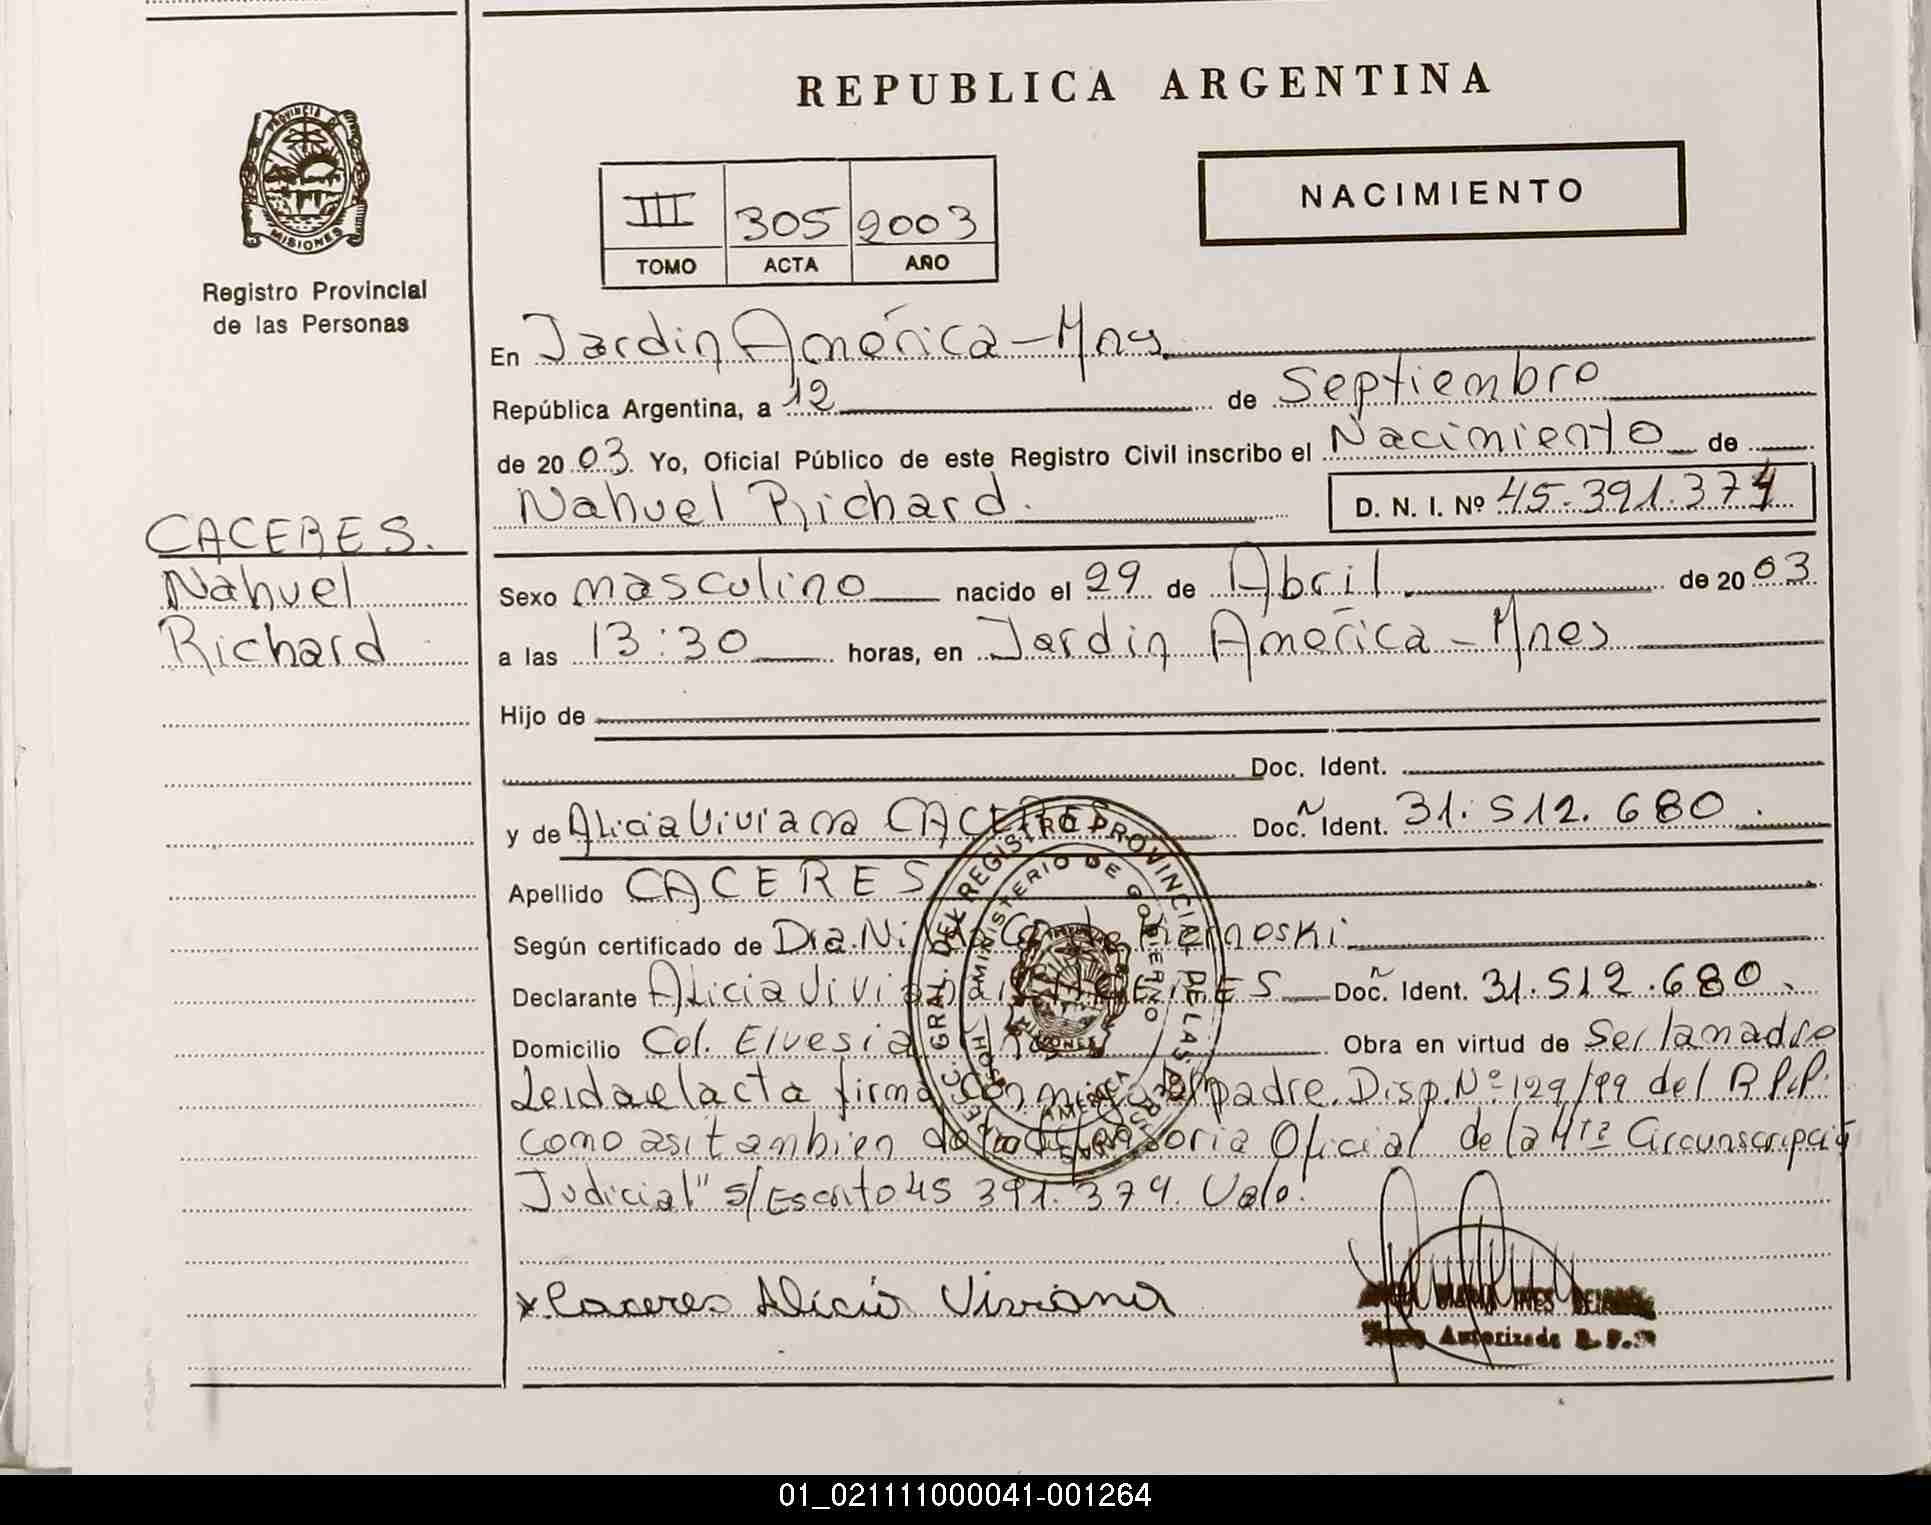 REPUBLICA ARGENTINA
PROVINCIA DE
MISIONES
Registro Provincial
de las Personas
III 305 2003
TOMO ACTA AÑO
NACIMIENTO
En Jardin América - Mnes
República Argentina, a 12 de Septiembre
de 2003. Yo, Oficial Público de este Registro Civil inscribo el Nacimiento de
Nahuel Richard. D. N. I. Nº 45.391.374
CACERES.
Nahuel
Richard
Sexo masculino nacido el 29 de Abril de 2003
a las 13:30 horas, en Jardin América - Mnes
Hijo de
Doc. Ident.
y de Alicia Viviana CACERES Doc. Ident. 31.512.680.
Apellido CACERES
Según certificado de Dra.
Declarante Alicia Viviana CACERES Doc. Ident. 31.512.680.
Domicilio Col. Elvesia Obra en virtud de Ser la madre
Leida el acta firma conmigo padre. Disp. Nº 129/99 del R.P.P.
como asi tambien de la defensoria Oficial de la 4ta Circunscripción
Judicial" s/Escrito 45 391.374. Vale.
x Caceres Alicia Viviana
Autorizada R.P.P
GRAL. DEL REGISTRO PROVINCIAL DE LAS PERSONAS
MINISTERIO DE GOBIERNO
MISIONES
AMERICA
01_021111000041-001264